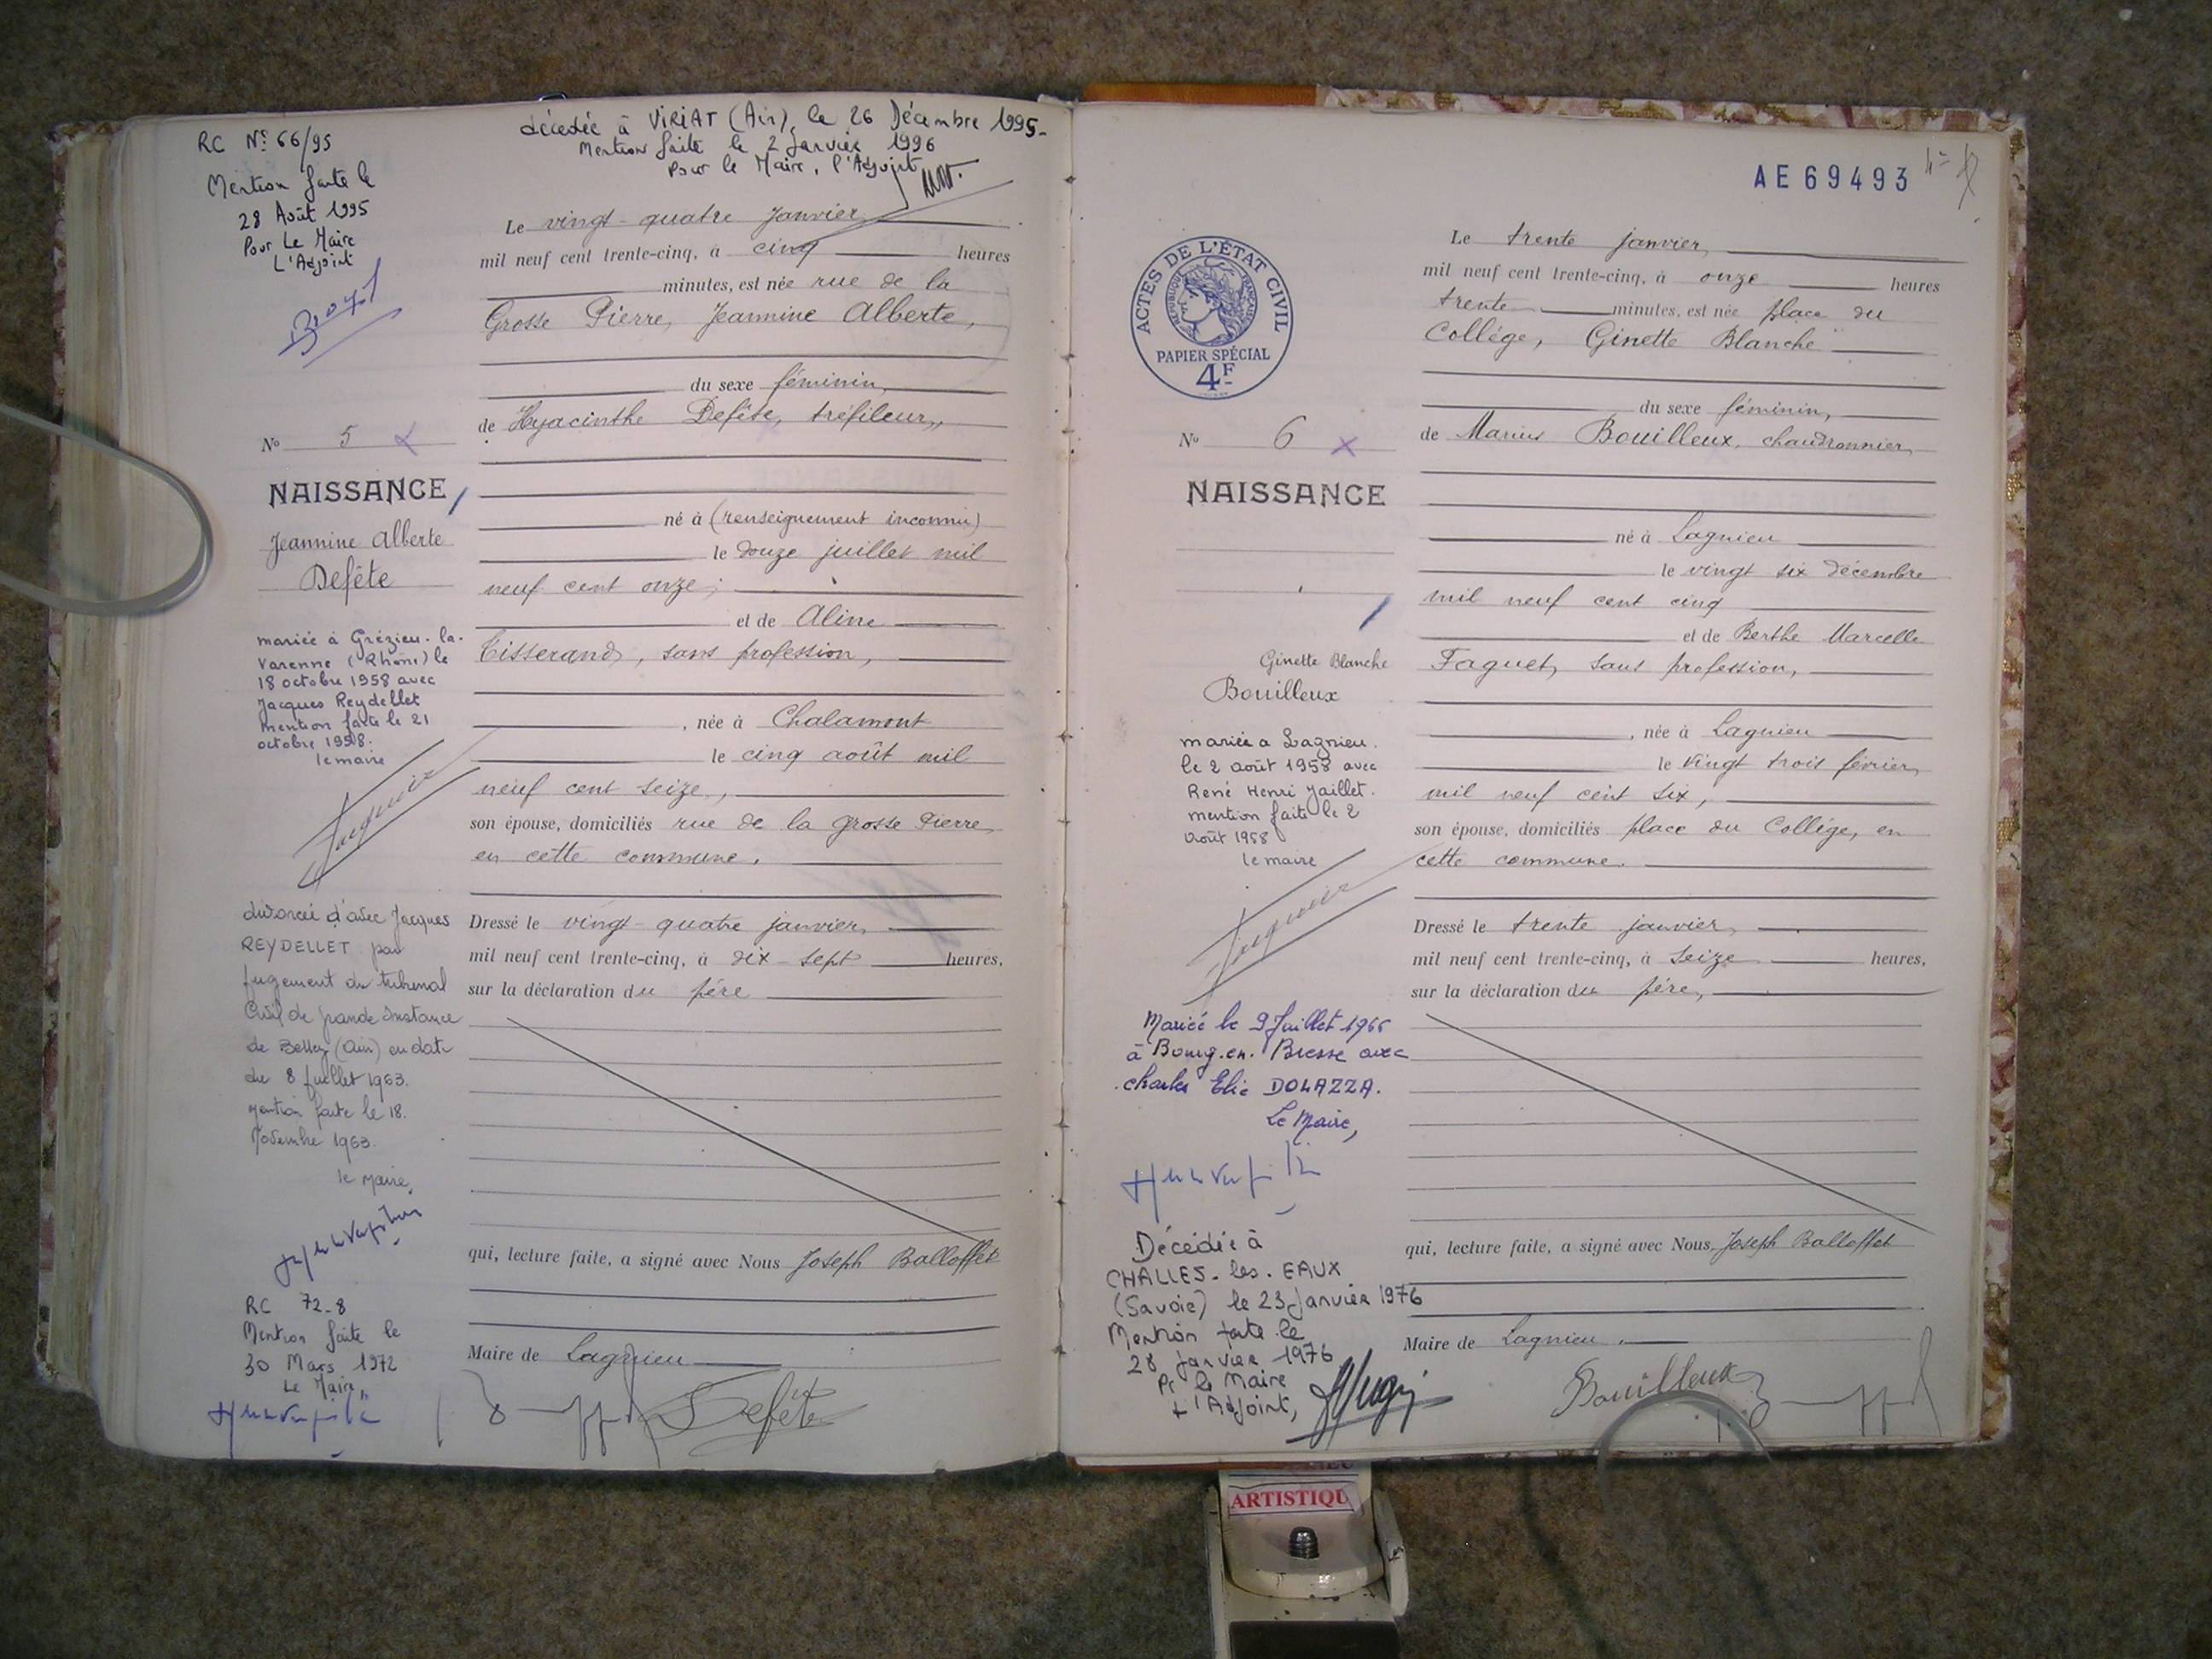 RC N° 66/95
Mention faite le
28 Août 1995
Pour Le Maire
L'Adjoint
décédée à VIRIAT (Ain), le 26 Décembre 1995-
Mention faite le 2 Janvier 1996
Pour le Maire, l'Adjoint
Le vingt-quatre janvier
mil neuf cent trente-cinq, à cinq heures
minutes, est née rue de la
Grosse Pierre, Jeannine Alberte,
du sexe féminin,
de Hyacinthe Defête, tréfileur,
né à (renseignement inconnu)
le douze juillet mil
neuf cent onze;
et de Aline
Tisserand, sans profession,
, née à Chalamont
le cinq août mil
neuf cent seize,
son épouse, domiciliés rue de la Grosse Pierre
en cette commune.
Dressé le vingt-quatre janvier,
mil neuf cent trente-cinq, à dix-sept heures,
sur la déclaration du père
qui, lecture faite, a signé avec Nous Joseph Balloffet
Maire de Lagnieu
Defête
No 5 x
NAISSANCE
Jeannine Alberte
Defête
mariée à Grézieu-la-
Varenne (Rhône) le
18 octobre 1958 avec
Jacques Reydellet
mention faite le 21
octobre 1958.
le maire
divorcée d'avec Jacques
REYDELLET par
jugement du tribunal
Civil de grande Instance
de Belley (Ain) en date
du 8 juillet 1963.
Mention faite le 18.
Novembre 1963.
le Maire,
RC 72-8
Mention faite le
30 Mars 1972
Le Maire,
AE 69493
ACTES DE L'ÉTAT CIVIL
RÉPUBLIQUE FRANÇAISE
PAPIER SPÉCIAL
4F
Le trente janvier,
mil neuf cent trente-cinq, à onze heures
trente minutes, est née place du
Collège, Ginette Blanche
du sexe féminin,
de Marius Bouilleux, chaudronnier,
né à Lagnieu
le vingt six décembre
mil neuf cent cinq
et de Berthe Marcelle
Faguet, sans profession,
, née à Lagnieu
le vingt trois février,
mil neuf cent six,
son épouse, domiciliés place du Collège, en
cette commune.
Dressé le trente janvier,
mil neuf cent trente-cinq, à seize heures,
sur la déclaration du père,
qui, lecture faite, a signé avec Nous, Joseph Balloffet
Maire de Lagnieu.
Bouilleux
No 6 x
NAISSANCE
Ginette Blanche
Bouilleux
mariée a Lagnieu.
le 2 août 1958 avec
René Henri Jaillet.
mention faite le 2
Août 1958
le maire
Mariée le 9 Juillet 1966
à Bourg.en.Bresse avec
charles Elie DOLAZZA.
Le Maire,
Décédée à
CHALLES-les-EAUX
(Savoie) le 23 Janvier 1976
Mention faite le
28 janvier 1976
Pr le Maire
L'Adjoint,
ARTISTIQU